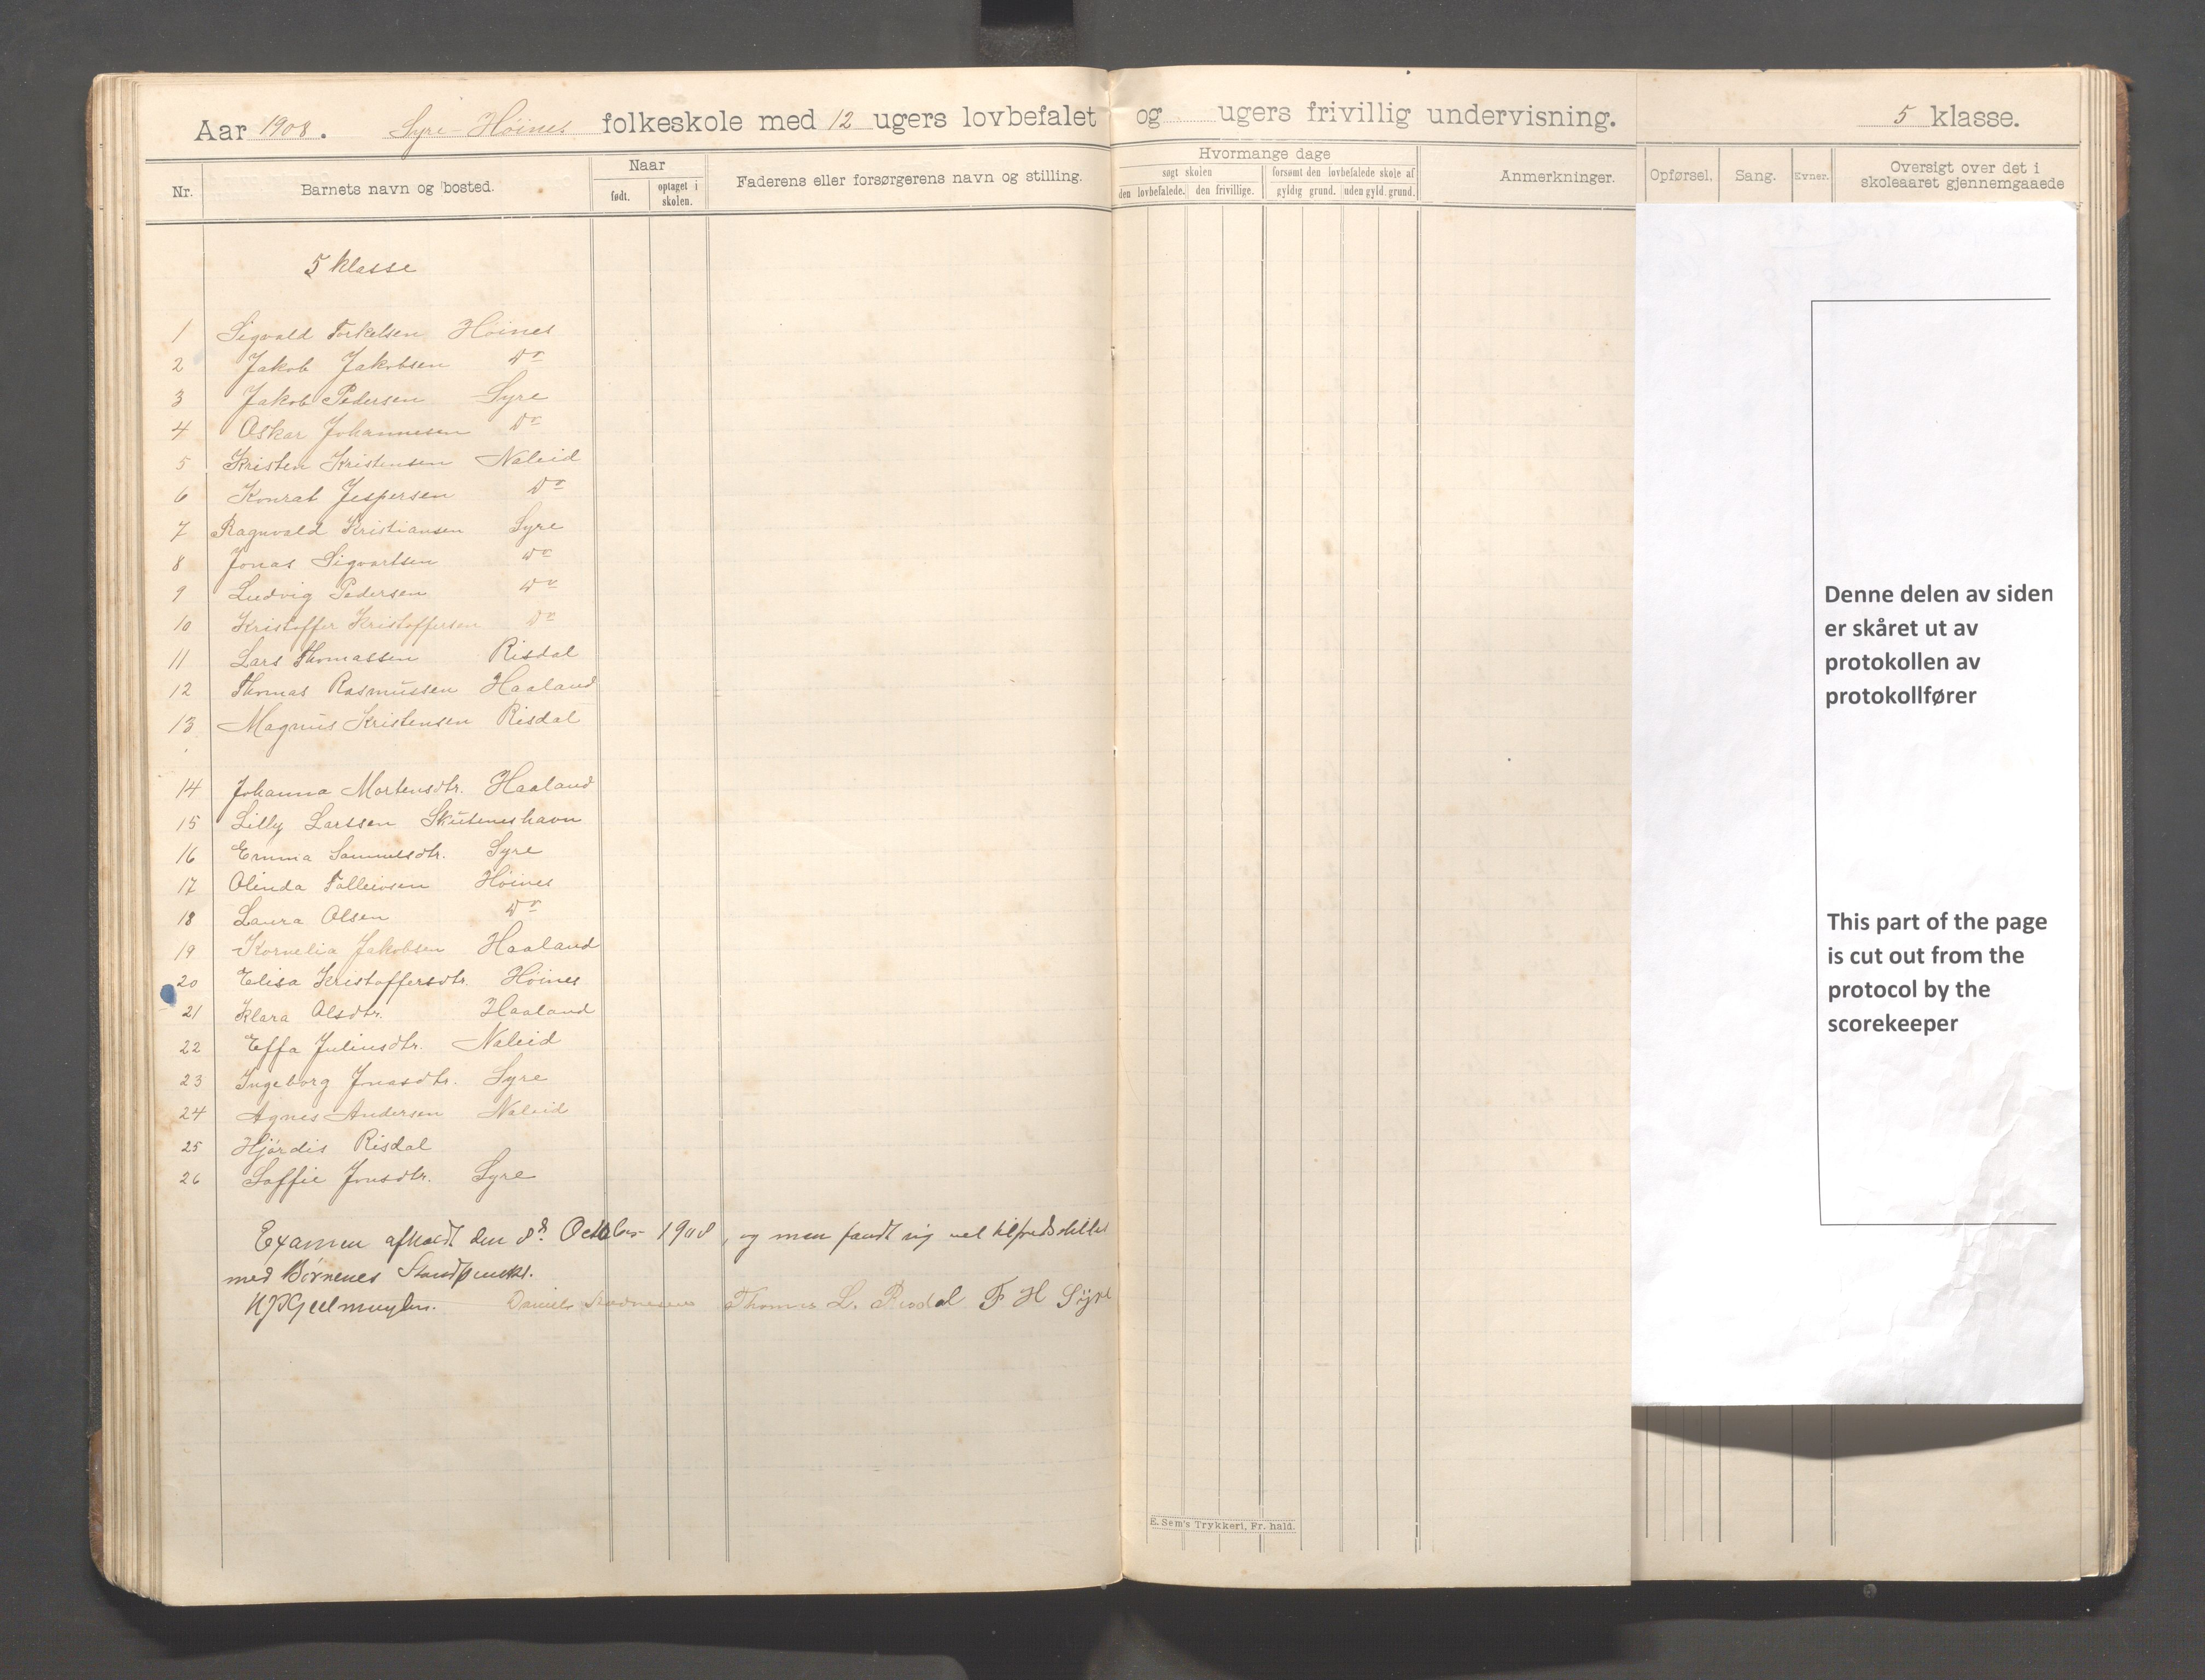 Aar 1908. Syre-Höines folkeskole med 12 ugers lovbefalet og ugers frivillig undervisning. 5 klasse.
Nr. Barnets navn og bosted. Naar født. optaget i skolen. Faderens eller forsørgerens navn og stilling. Hvormange dage søgt skolen den lovbefalede. den frivillige. forsømt den lovbefalede skole af gyldig grund. uden gyld. grund. Anmerkninger. Opførsel. Sang. Evner. Oversigt over det i skoleaaret gjennemgaaede
5 klasse
1 Sigvald Torkelsen Höines
2 Jakob Jakobsen Do
3 Jakob Pedersen Syre
4 Oskar Johannesen Do
5 Kristen Kristensen Naleid
6 Konrat Jespersen Do
7 Ragnvald Kristiansen Syre
8 Jonas Sigvartsen Do
9 Ludvig Pedersen Do
10 Kristoffer Kristoffersen Do
11 Lars Thomassen Risdal
12 Thomas Rasmussen Haaland
13 Magnus Kristensen Risdal
14 Johanna Mortensdtr. Haaland
15 Lilly Larssen Skuteneshavn
16 Emma Samuelsdtr. Syre
17 Olinda Tolleivsen Höines
18 Laura Olsen Do
19 Kornelia Jakobsen Haaland
20 Elisa Kristoffersdtr. Höines
21 Klara Olsdtr. Haaland
22 Effa Juliusdtr. Naleid
23 Ingeborg Jonasdtr. Syre
24 Agnes Andersen Naleid
25 Hjördis Risdal
26 Soffie Jonsdtr. Syre
Examen afholdt den 8d October 1908, og man fandt sig vel tilfredsstillet
med Börnenes Standpunkt.
Daniel Thomas L. Risdal F H Syre
E. Sem's Trykkeri, Fr. hald.
Denne delen av siden
er skåret ut av
protokollen av
protokollfører
This part of the page
is cut out from the
protocol by the
scorekeeper